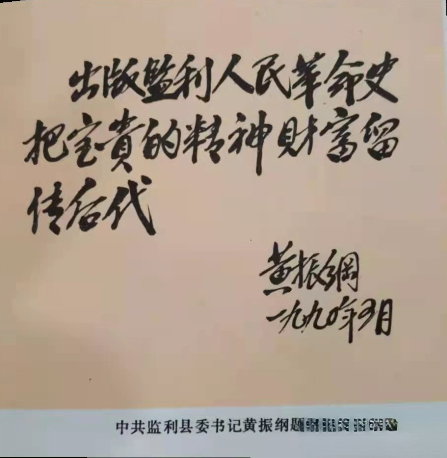 出版监利人民革命史
把宝贵的精神财富留
传后代
黄振纲
一九九〇年五月
中共监利县委书记黄振纲题